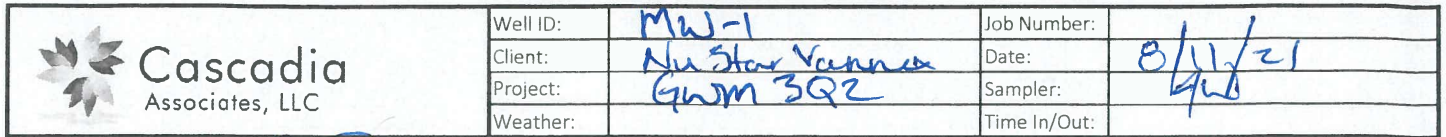 Cascadia
Associates, LLC
Well ID: MW-1 Job Number:
Client: NuStar Vannex Date: 8/11/21
Project: GWM 3Q2 Sampler:
Weather: Time In/Out: